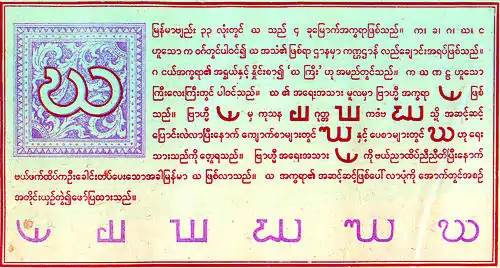 ဃ
မြန်မာဗျည်း ၃၃ လုံးတွင် ဃ သည် ၄ ခုမြောက်အက္ခရာဖြစ်သည်။ က၊ ခ၊ ဂ၊ ဃ၊ င
ဟူသော က ဝဂ်တွင်ပါဝင်၍ ဃ အသံ၏ဖြစ်ရာ ဌာနမှာ ကဏ္ဌဌာန် လည်ချောင်းအရပ်ဖြစ်သည်။
ဂ ငယ်အက္ခရာ၏ အရွယ်နှင့် နှိုင်းစာ၍ ဃ ကြီး ဟု အမည်တွင်သည်။ က ဃ အ ဌ ဟူသော
ကြီးလေးကြီးတွင် ပါဝင်သည်။ ဃ ၏ အရေးအသား မူလမှာ ဗြာဟ္မီ အက္ခရာ ဖြစ်
သည်။ ဗြာဟ္မီ မှ ကုသန ဂုတ္တ ကဒံဗ သို့ အဆင့်ဆင့်
ပြောင်းလဲလာပြီးနောက် ကျောက်စာများတွင် နှင့် ပေစာများတွင် ဟု ရေး
သားသည်ကို တွေ့ရသည်။ ဗြာဟ္မီ အရေးအသား ကို ဗယ်ညာထိပ်ညီညတ်ပြီးနောက်
ဗယ်ဖက်ထိပ်ကဦးခေါင်းတပ်ပေးသောအခါမြန်မာ ဃ ဖြစ်လာသည်။ ဃ အက္ခရာ၏ အဆင့်ဆင့်ဖြစ်ပေါ် လာပုံကို အောက်တွင်အစဉ်
အတိုင်းယှဉ်တွဲ၍ဖော်ပြထားသည်။
ဃ